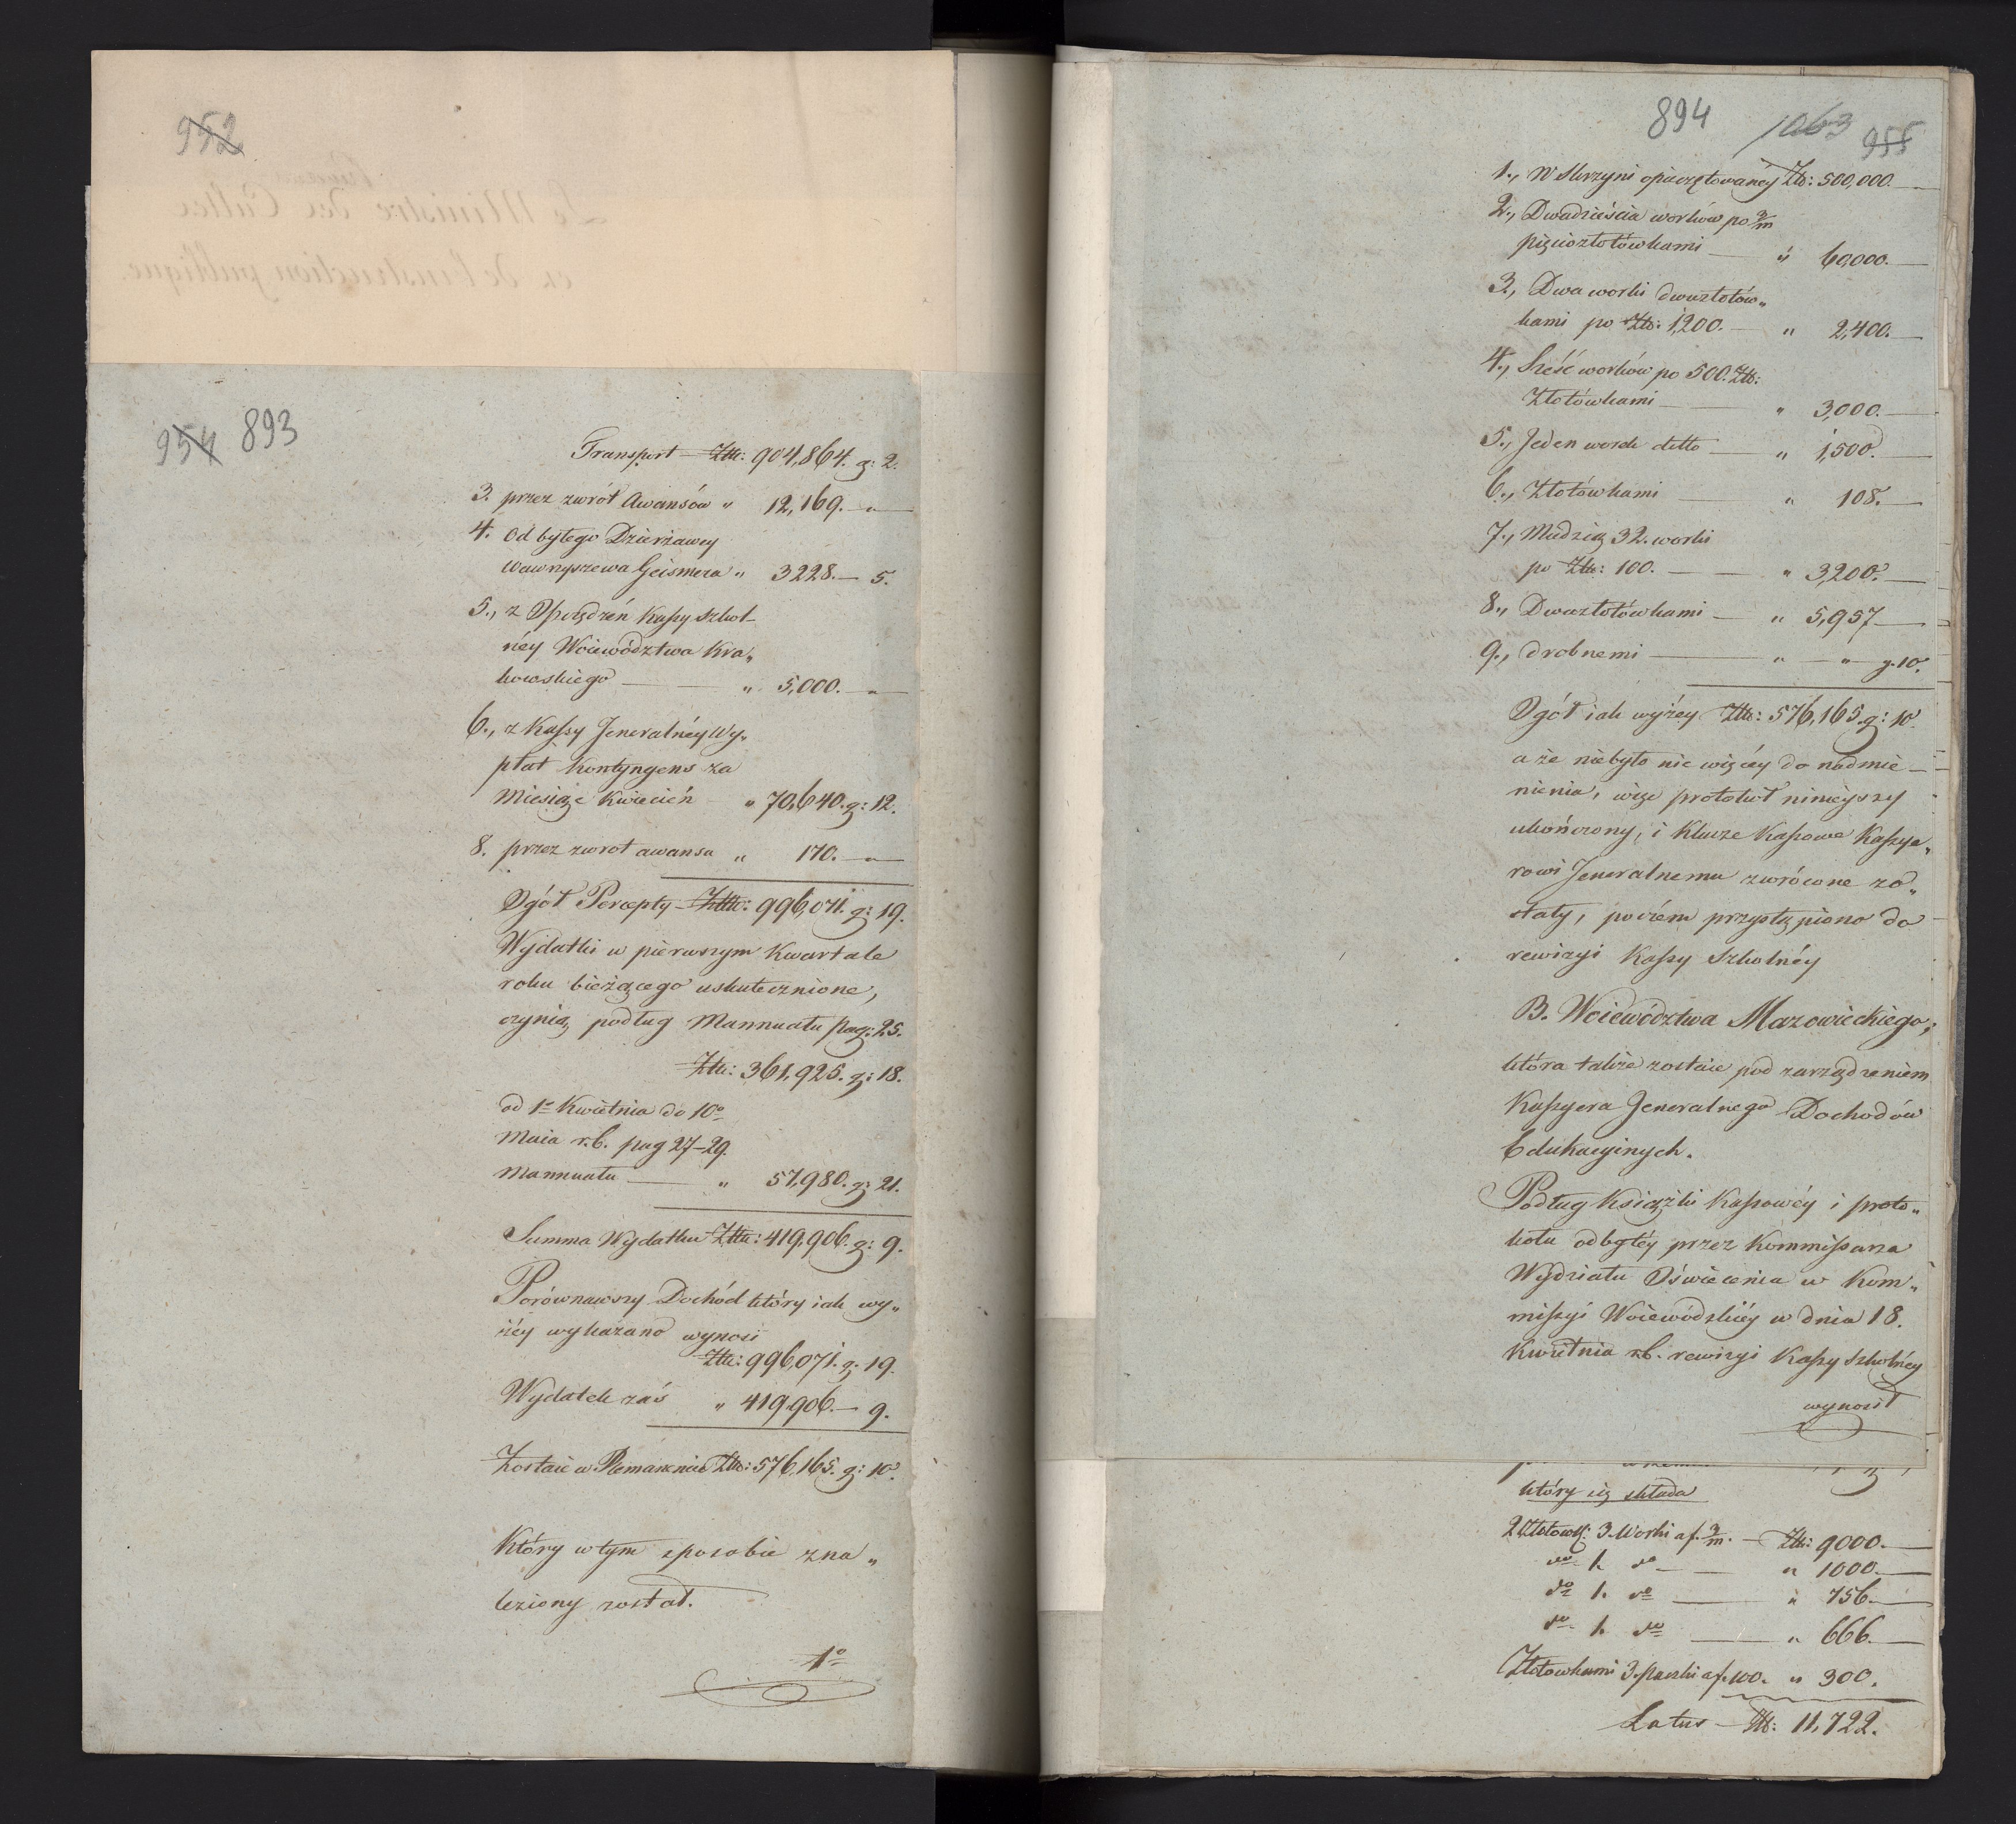 952
954 893
Transport — Złtt: 904,864. g: 2.
3. przez zwrót Awansów " 12,169. — "
4. od byłego Dzierżawcy
Wawryszewa Geismera " 3228. — 5.
5., z Oporządzeń Kassy Szkol-
néy Woiewództwa Kra„
kowskiego — " 5,000. — "
6., z Kassy Jeneralnéy Wy„
płat Kontyngens za
Miesiąc Kwiecień — " 70,640. g: 12.
8. przez zwrot awansu " 170. — "
Ogół Percepty — Złtt: 996,071. g: 19.
Wydatki w pierwszym Kwartale
roku bieżącego uskutecznione,
czynią podług Mannuału pag: 25.
Złt: 361,925. g: 18.
od 1º Kwietnia do 10º
Maia r.b. pag 27-29.
Mannuału — " 57,980. g: 21.
Summa Wydatku Złtt: 419,906. g: 9.
Porównawszy Dochód który iak wy„
żéy wykazano wynosi
Złt: 996,071. g. 19.
Wydatek zaś " 419,906. — 9.
Zostaie w Remanencie Złt: 576,165. g: 10.
Który w tym sposobie zna„
leziony został.
1º
894 1063 955
1., W Skrzyni opieczętowanéy Złt: 500,000. —
2., Dwadzieścia worków po 3/m
pięciozłotówkami — " 60,000. —
3., Dwa worki dwuzłotów„
kami po Złt: 1,200. — " 2,400. —
4., Sześć worków po 500. Złt:
Złotówkami — " 3,000. —
5., Jeden worek detto — " 1,500. —
6., Złotówkami — " 108. —
7., Miedzią 32. worki
po Złt: 100. — " 3,200. —
8., Dwuzłotówkami — " 5,957 —
9., drobnemi — " — " — g. 10.
Ogół iak wyżey Złt: 576,165. g: 10.
a że niebyło nic więcéy do nadmie —
nienia, więc protokuł ninieyszy
ukończony, i Klucze Kassowe Kassye„
rowi Jeneralnemu zwrócone zo„
stały, poczém przystąpiono do
rewizyi Kassy Szkolnéy
B. Woiewództwa Mazowieckiego;
która także zostaie pod zarządzeniem
Kassyera Jeneralnego Dochodów
Edukacyinych.
Podług Książki Kassowéy i proto„
kołu odbytéy przez Kommissarza
Wydziału Oświecenia w Kom„
missyi Woiewódzkiéy w dniu 18.
Kwietnia r.b. rewizyi Kassy Szkolnéy
wynosił
który się składa
2 Złotowk: 3. Worki a f. 3/m. — Złt: 9000. —
do 1. do — " 1000 —
do 1. do — " 756. —
do 1. do — " 666. —
Złotowkami 3. paczki a f. 100. " 300.
Latus — Złt: 11,722.